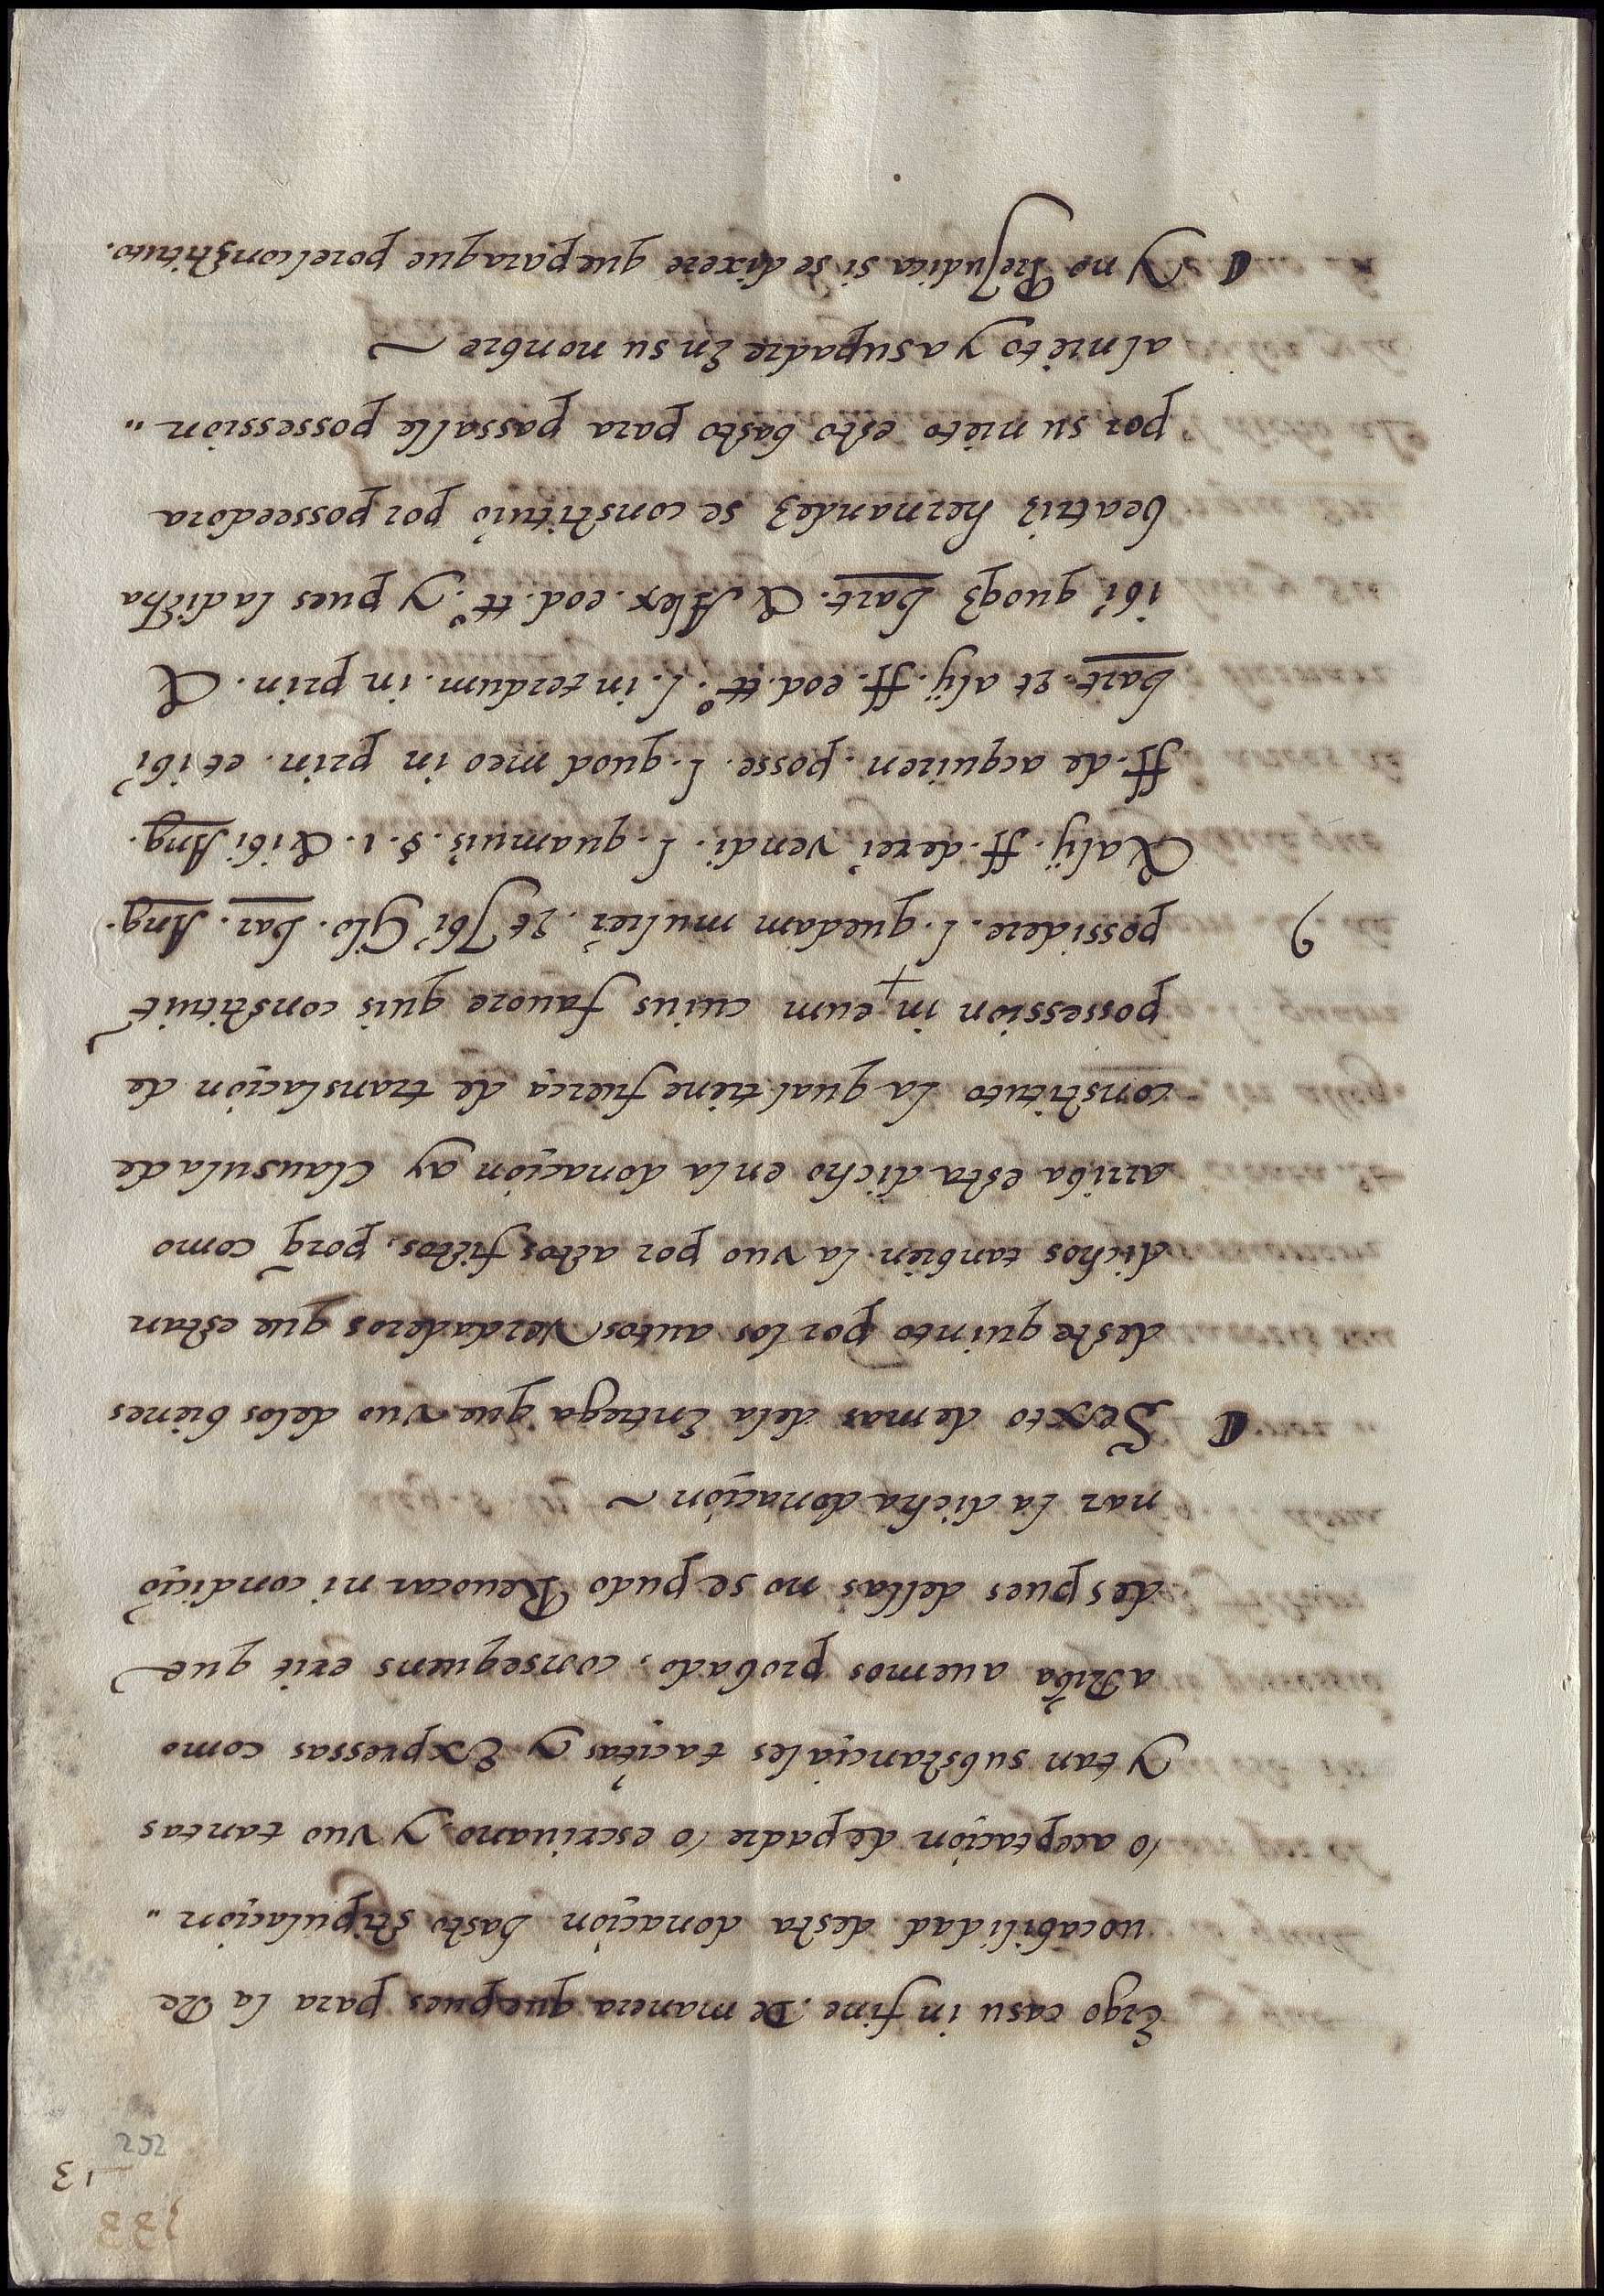 133
13
252
Ergo casu in fine. De manera que pues para la Re
uocabilidad desta donaçion basto stipulaçion..
lo aceptaçion de padre lo escriuano, y vuo tantas
y tan substançiales taçitas y Expressas como
aRiba auemos probado, consequens erit que
despues dellas no se pudo Reuocar ni condiçio
nar la dicha donaçion ~
¶ Sexto demas dela Entrega que vuo delos bienes
deste quinto por los autos Verdaderos que estan
dichos tanbien la vuo por actos fictos, porq̃ como
arriba esta dicho en la donaçion ay Clausula de
constituto la qual tiene fuerça de translaçion de
possession in eum cuius fauore quis constituit
possidere. l. quedam mulier. et Ibi Glo. bar. Ang.
& alij. ff. de rei vendi. l. quamuis. §. 1. & ibi Ang.
ff. de acquiren. posse. l. quod meo in prin. et ibi
bart. et alij. ff. eod. ttº. l. interdum. in prin. &
ibi quoqz bart. & Alex. eod. ttº. y pues la dicha
beatriz hernandez se constituio por posseedora
por su nieto esto basto para passalle possession..
al nieto y a su padre En su nonbre ~
¶ y no PreJudica si se dixere que para que por el constituto.